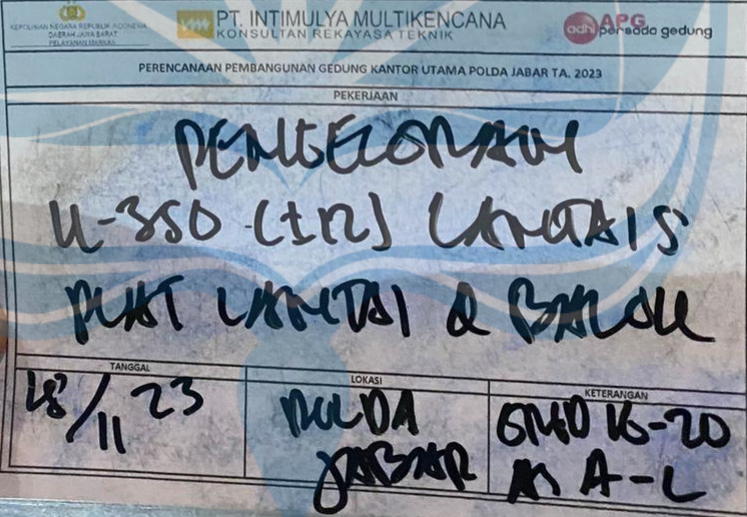 KEPOLISIAN NEGARA REPUBLIK INDONESIA
DAERAH JAWA BARAT
PELAYANAN MARKAS
PT. INTIMULYA MULTIKENCANA
KONSULTAN REKAYASA TEKNIK
APG
adhi persada gedung
PERENCANAAN PEMBANGUNAN GEDUNG KANTOR UTAMA POLDA JABAR TA. 2023
PEKERJAAN
PENGECORAN
K-350 (±12) LANTAI 5
PLAT LANTAI & BALOK
TANGGAL
18/11 23
LOKASI
POLDA
JABAR
KETERANGAN
GRID 16-20
AS A-L